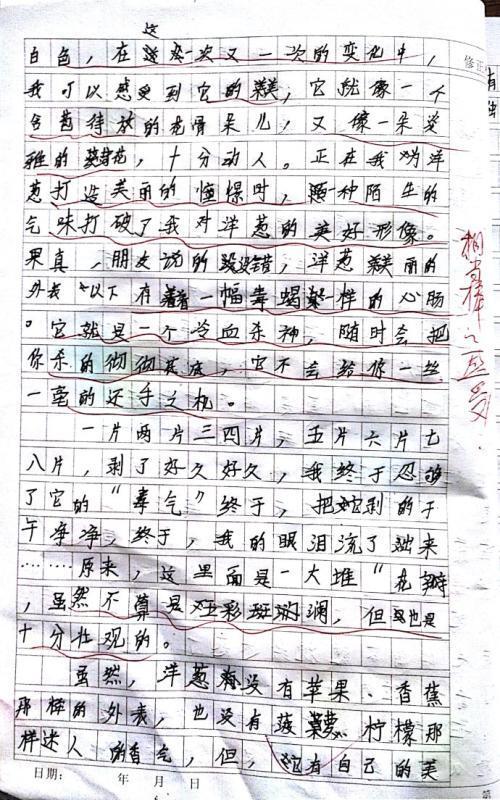 这
白色，在一次又一次的变化中，
我可以感受到它的美；它就像一个
含苞待放的花骨朵儿，又像一朵淡
雅的菊花，十分动人。正在我为洋
葱打造美丽的憧憬时，一种陌生的
气味打破了我对洋葱的美好形像。
果真，朋友说的没错，洋葱美丽的
外表以下有着一幅毒蝎一样的心肠
。它就是一个冷血杀神，随时会把
你杀的彻彻底底，它不会给你一丝
一毫的还手之机。
一片两片三四片，五片六片七
八片，剥了好久好久，我终于忍够
了它的“毒气”终于，把它剥的干
干净净，终于，我的眼泪流了出来
……原来，这里面是一大堆“花瓣
，虽然不算是五彩斑斓，但也是
十分壮观的。
虽然，洋葱没有苹果、香蕉
那样的外表，也没有菠萝、柠檬那
样迷人的香气，但，它有自己的美
日期： 年 月 日
修正
第